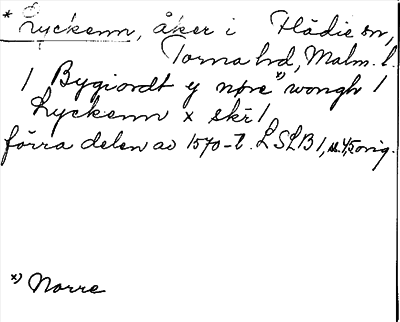 * Lyckenn, åker i Flädie sn,
Torna hd, Malm. l.
/ Bygiordt y nøre *) wongh /
Lyckenn x skr /
förra delen av 1570-t. LSLB 1, s. 45 orig.
*) Norre